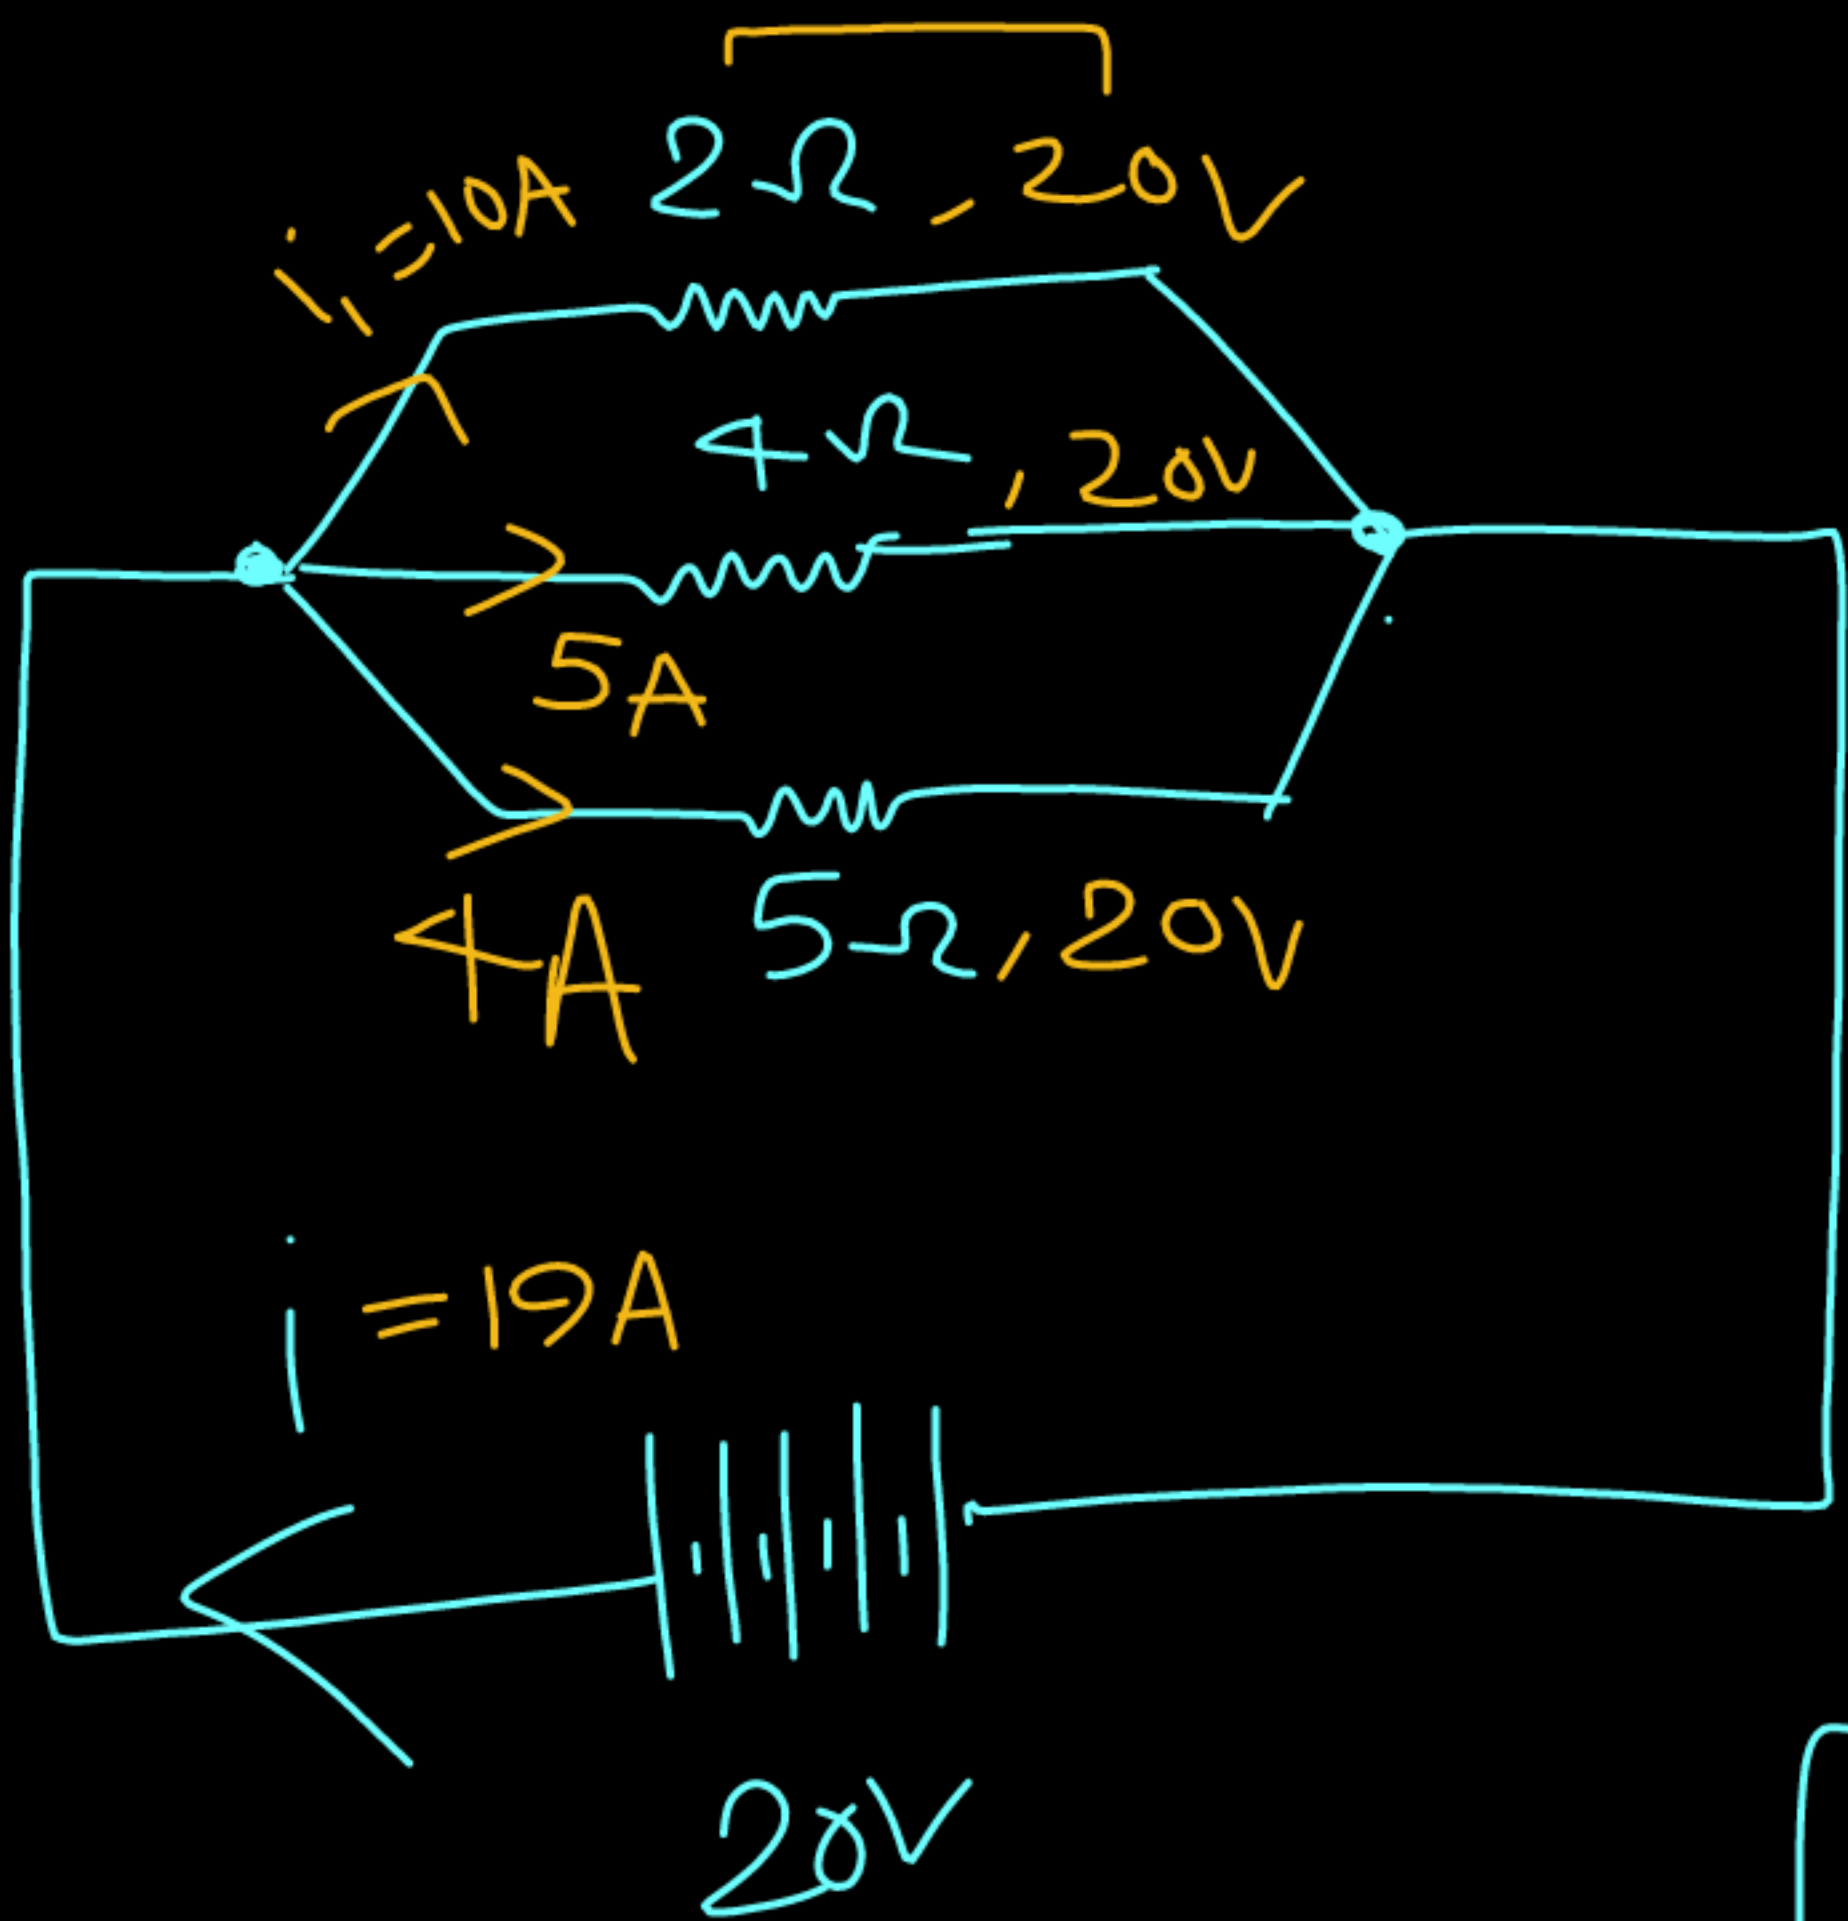 i₁ = 10A
2Ω, 20V
4Ω, 20V
5A
4A
5Ω, 20V
i = 19A
20V